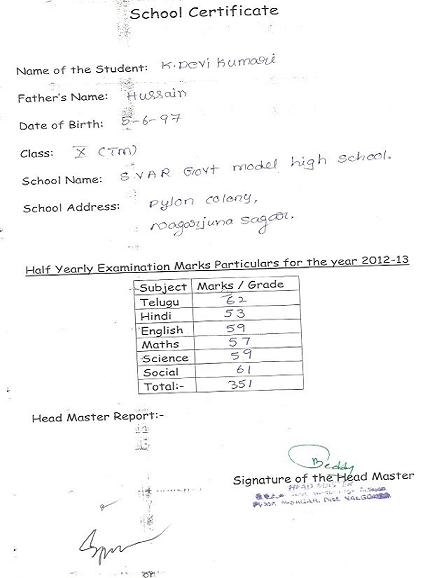 School Certificate
Name of the Student: K. Devi Kumari
Father's Name: Hussain
Date of Birth: 5-6-97
Class: X (TM)
School Name: S.V.A.R Govt model high school.
School Address: Pylon colony,
Nagarjuna Sagar.
Half Yearly Examination Marks Particulars for the year 2012-13
Subject Marks / Grade
Telugu 62
Hindi 53
English 59
Maths 57
Science 59
Social 61
Total:- 351
Head Master Report:-
Signature of the Head Master